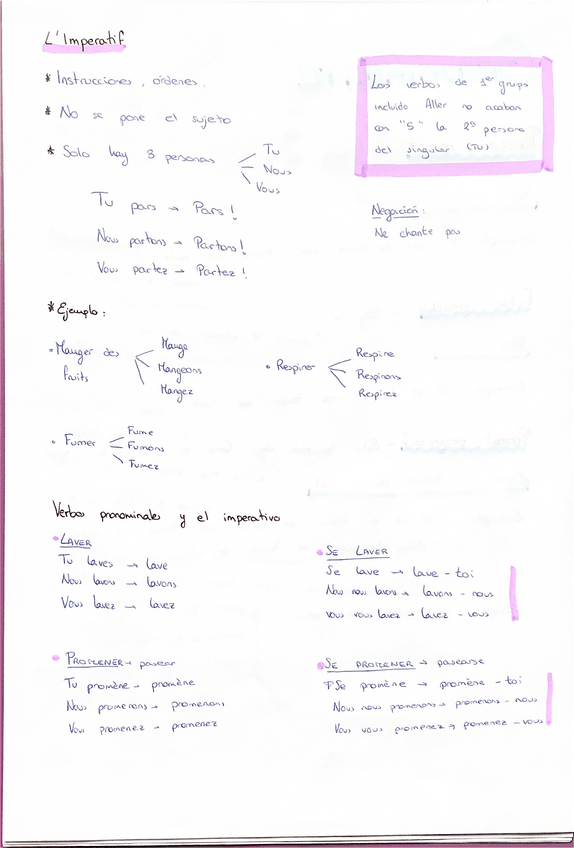 L'Imperatif
* Instrucciones, órdenes.
* No se pone el sujeto
* Solo hay 3 personas
Tu
Nous
Vous
Tu pars → Pars!
Nous partons → Partons!
Vous partez → Partez!
Los verbos de 1er grupo
incluido Aller no acaban
con "S" la 2ª persona
del singular (TU)
Negación:
Ne chante pas
* Ejemplo:
• Manger des
fruits
Mange
Mangeons
Mangez
• Respirer
Respire
Respirons
Respirez
• Fumer
Fume
Fumons
Fumez
Verbos pronominales y el imperativo
• LAVER
Tu laves → lave
Nous lavons → lavons
Vous lavez → lavez
• SE LAVER
Se lave → lave - toi
Nous nous lavons → lavons - nous
vous vous lavez → lavez - vous
• PROMENER → pasear
Tu promène → promène
Nous promenons → promenons
Vous promenez → promenez
• SE PROMENER → pasearse
Se promène → promène - toi
Nous nous promenons → promenons - nous
Vous vous promenez → promenez - vous